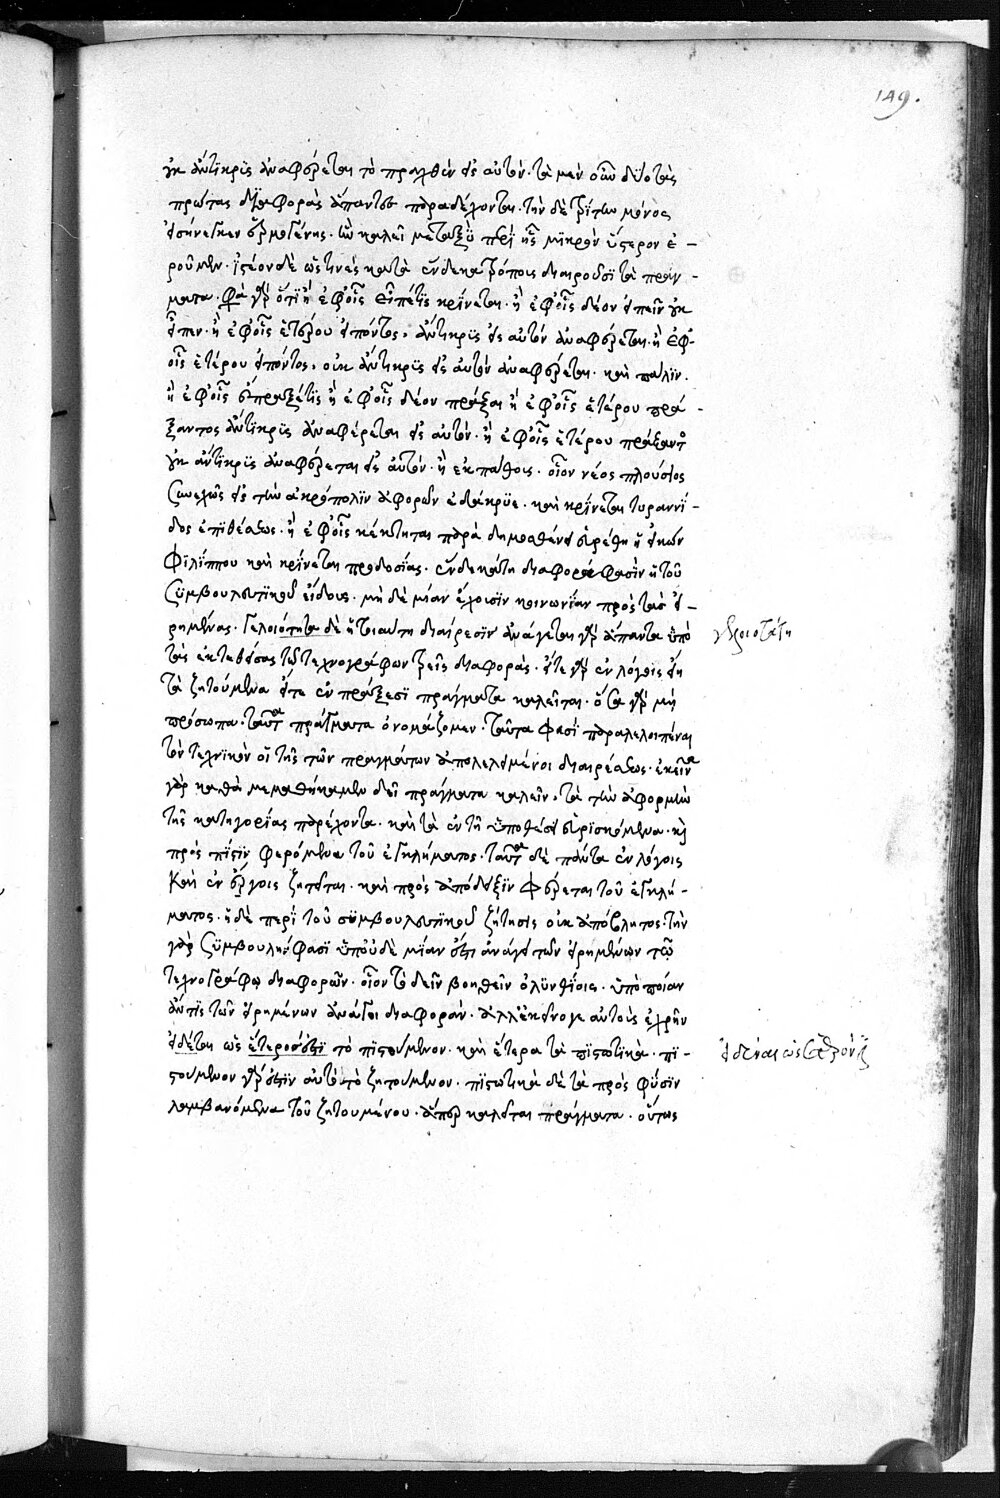 149.
οὐκ ἄντικρϋς ἀναφέρεται τὸ πραχθὲν εἰς αὐτόν· τὰ μὲν οὖν δύο τὰς
πρώτας διαφορὰς ἅπαντες παραδέχονται· τὴν δὲ τρίτην μόνος
εἰσήνεγκεν ἑρμογένης· ἣν καλεῖ μεταξὺ περὶ ἧς μϊκρὸν ὕστερον ἐ-
ροῦμεν· ἰστέον δὲ ὥς τινες κατὰ ἕνδεκα τρόπους διαιροῦσϊ τὰ πράγ-
ματα· φασὶ γὰρ ὅτϊ ἢ ἐφ' οἷς εἶπέ τϊς κρίνεται· ἢ ἐφ' οἷς δέον εἰπεῖν οὐκ
εἶπεν· ἢ ἐφ' οἷς ἑτέρου εἰπόντος, ἄντικρϋς εἰς αὐτὸν ἀναφέρεται· ἢ ἐφ'
οἷς ἑτέρου εἰπόντος, οὐκ ἄντικρϋς εἰς αὐτὸν ἀναφέρεται· καὶ πάλϊν.
ἢ ἐφ' οἷς ἔπραξέ τϊς ἢ ἐφ' οἷς δέον πρᾶξαι ἢ ἐφ' οἷς ἑτέρου πρά-
ξαντος ἄντικρϋς ἀναφέρεται εἰς αὐτόν· ἢ ἐφ' οἷς ἑτέρου πράξαντος
οὐκ ἄντικρϋς ἀναφέρεται εἰς αὐτόν· ἢ ἐκ πάθους· οἷον νέος πλούσϊος
συνεχῶς εἰς τὴν ἀκρόπολϊν ἀφορῶν ἐδάκρϋε· καὶ κρίνεται τυραννί-
δος ἐπϊθέσεως· ἢ ἐφ' οἷς κέκτηται παρὰ δημοσθένει εὑρέθη ἡ εἰκὼν
φϊλίππου καὶ κρίνεται προδοσίας· ἑνδεκάτη διαφορά φασὶν ἡ τοῦ
σϋμβουλευτϊκοῦ εἴδους· μὴ δὲ μίαν ἔχουσϊν κοινωνΐαν πρὸς τὰς εἰ-
ρημένας· γελοιότατα δὲ ἡ τοιαύτη διαίρεσϊς ἀνάγεται γὰρ ἅπαντα ὑπὸ
τὰς ἐκτεθείσας τῷ τεχνογράφῳ τρεῖς διαφοράς· εἴτε γὰρ ἐν λόγοις εἴη
τὰ ζητούμενα εἴτε ἐν πράξεσϊ πράγματα καλεῖται· ὅσα γὰρ μὴ
πρόσωπα· ταῦτα πράγματα ὀνομάζομεν· ταῦτα φασῒ παραλελοιπέναι
τὸν τεχνϊκὸν οἱ τῆς τῶν πραγμάτων ἀπολελειμένοι διαιρέσεως· ἐκεῖνα
γὰρ καθὰ μεμαθήκαμεν δεῖ πράγματα καλεῖν· τὰ τὴν ἀφορμὴν
τῆς κατηγορίας παρέχοντα· καὶ τὰ ἐν τῇ ὑποθέσει εὑρϊσκόμενα· καὶ
πρὸς πΐστϊν φερόμενα τοῦ ἐγκλήματος· ταῦτα δὲ πάντα ἐν λόγοις
καὶ ἐν ἔργοις ζητεῖται· καὶ πρὸς ἀπόδειξϊν φέρεται τοῦ ἐγκλή-
ματος· ἡ δὲ περὶ τοῦ σϋμβουλευτϊκοῦ ζήτησϊς οὐκ ἀπόβλητος· τὴν
γὰρ σϋμβουλήν φασϊ ὑπ' οὐδὲ μΐαν ἔστι ἀνάγειν τῶν εἰρημένων τῷ
τεχνογράφῳ διαφορῶν· οἷον τὸ δεῖν βοηθεῖν ὀλϋνθΐοις· ὑπὸ ποίαν
ἄν τϊς τῶν εἰρημένων ἀνάγοι διαφοράν· ἀλλ' ἐκεῖνό γε αὐτοὺς ἐχρῆν
εἰδέναι ὡς ἕτερός ἐστϊ τὸ πϊστούμενον· καὶ ἕτερα τὰ πϊστωτϊκά· πϊ-
στούμενον γάρ ἐστϊν αὐτὸ τὸ ζητούμενον· πϊστωτϊκὰ δὲ τὰ πρὸς φύσϊν
λαμβανόμενα τοῦ ζητουμένου· ἅπερ καλεῖται πράγματα· οὕτως
γελοιοτάτη
εἰδέναι ὡς ἕτερόν ἐστι